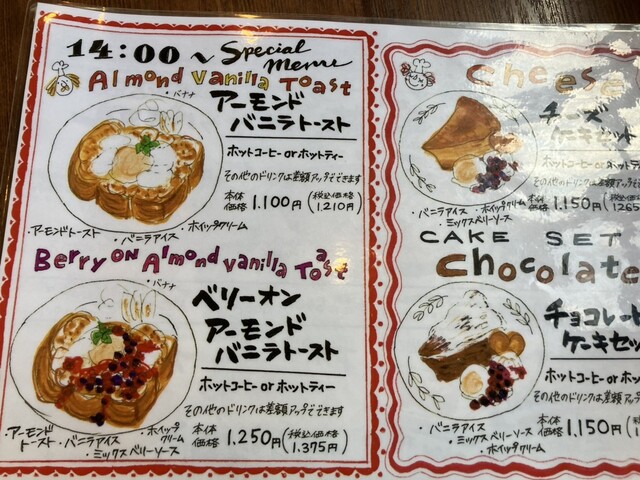 14:00～ Special menu
Almond Vanilla Toast
・バナナ
アーモンド
バニラトースト
ホットコーヒー or ホットティー
その他のドリンクは差額アップでできます
本体価格 1,100円 (税込価格 1,210円)
・アーモンドトースト ・バニラアイス ・ホイップクリーム
Berry on Almond Vanilla Toast
・バナナ
ベリーオン
アーモンド
バニラトースト
ホットコーヒー or ホットティー
その他のドリンクは差額アップでできます
本体価格 1,250円 (税込価格 1,375円)
・アーモンドトースト ・バニラアイス ・ホイップクリーム
・ミックスベリーソース
Cheese
チーズ
ケーキセット
ホットコーヒー or ホット
その他のドリンクは差額アップ
本体価格 1,150円 (税込価格 1265
・バニラアイス ・ホイップクリーム
・ミックスベリーソース
CAKE SET
Chocolate
チョコレート
ケーキセット
ホットコーヒー or ホット
その他のドリンクは差額アップ
本体価格 1,150円
・バニラアイス
・ミックスベリーソース
・ホイップクリーム